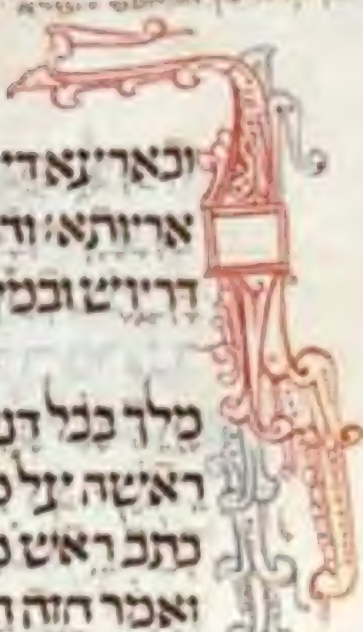 ובארעא די
אריותא׃ וד
דריוש ובמ
מלך בבל דנ
ראשה על מ
כתב ראש מ
ואמר חזה ה